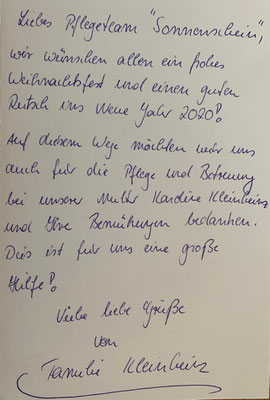 Liebes Pflegeteam "Sonnenschein",
wir wünschen allen ein frohes
Weihnachtsfest und einen guten
Rutsch ins Neue Jahr 2020!
Auf diesem Wege möchten wir uns
auch für die Pflege und Betreuung
bei unserer Mutter Karoline Kleinheinz
und Ihre Bemühungen bedanken.
Dies ist für uns eine große
Hilfe!
Viele liebe Grüße
von
Familie Kleinheinz